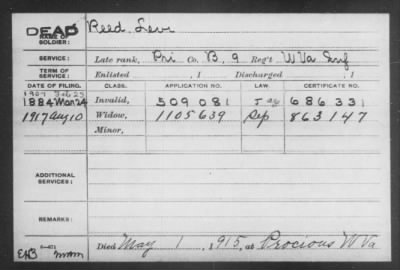 DEAD Reed, Levi
NAME OF
SOLDIER:
SERVICE: Late rank, Pri Co. B, 9 Reg't W Va Inf
TERM OF
SERVICE: Enlisted , 1 Discharged , 1
DATE OF FILING. CLASS. APPLICATION NO. LAW. CERTIFICATE NO.
1907 Feb 25
1884 Mar 24 Invalid, 509 081 686 331
1917 Aug 10 Widow, 1105639 Sep 863147
Minor,
ADDITIONAL
SERVICES:
REMARKS:
Died May 1, 1915, at Procious W Va